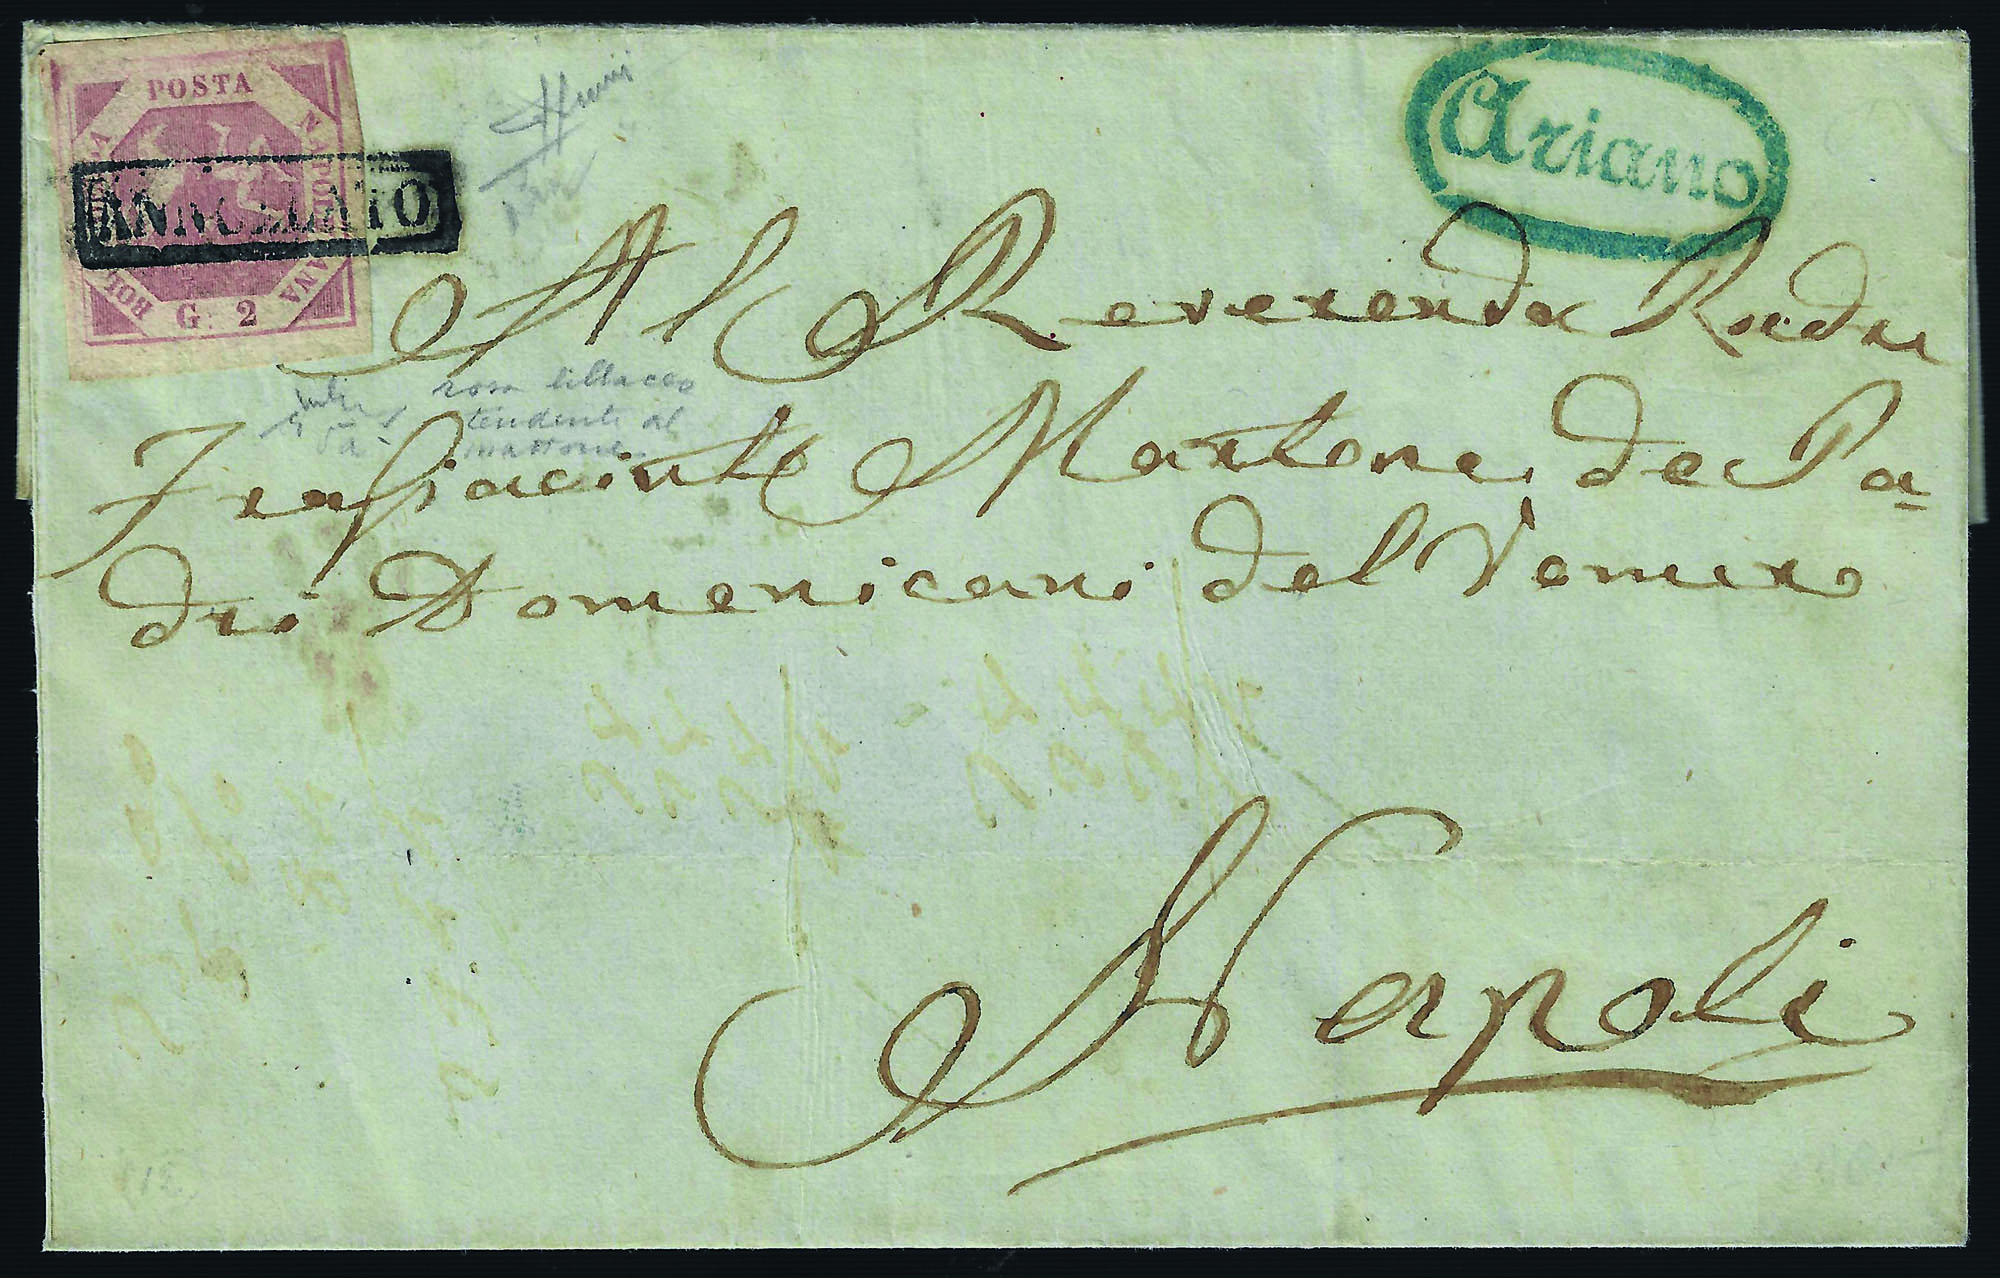 POSTA
NAPOLETANA
BOLLO DELLA
G. 2
ANNULLATO
Ariano
Al Reverendo Padre
Fra Giacinto Martone de Pa=
dri Domenicani del Vomero
Napoli
rosa lillaceo
tendente al
mattone